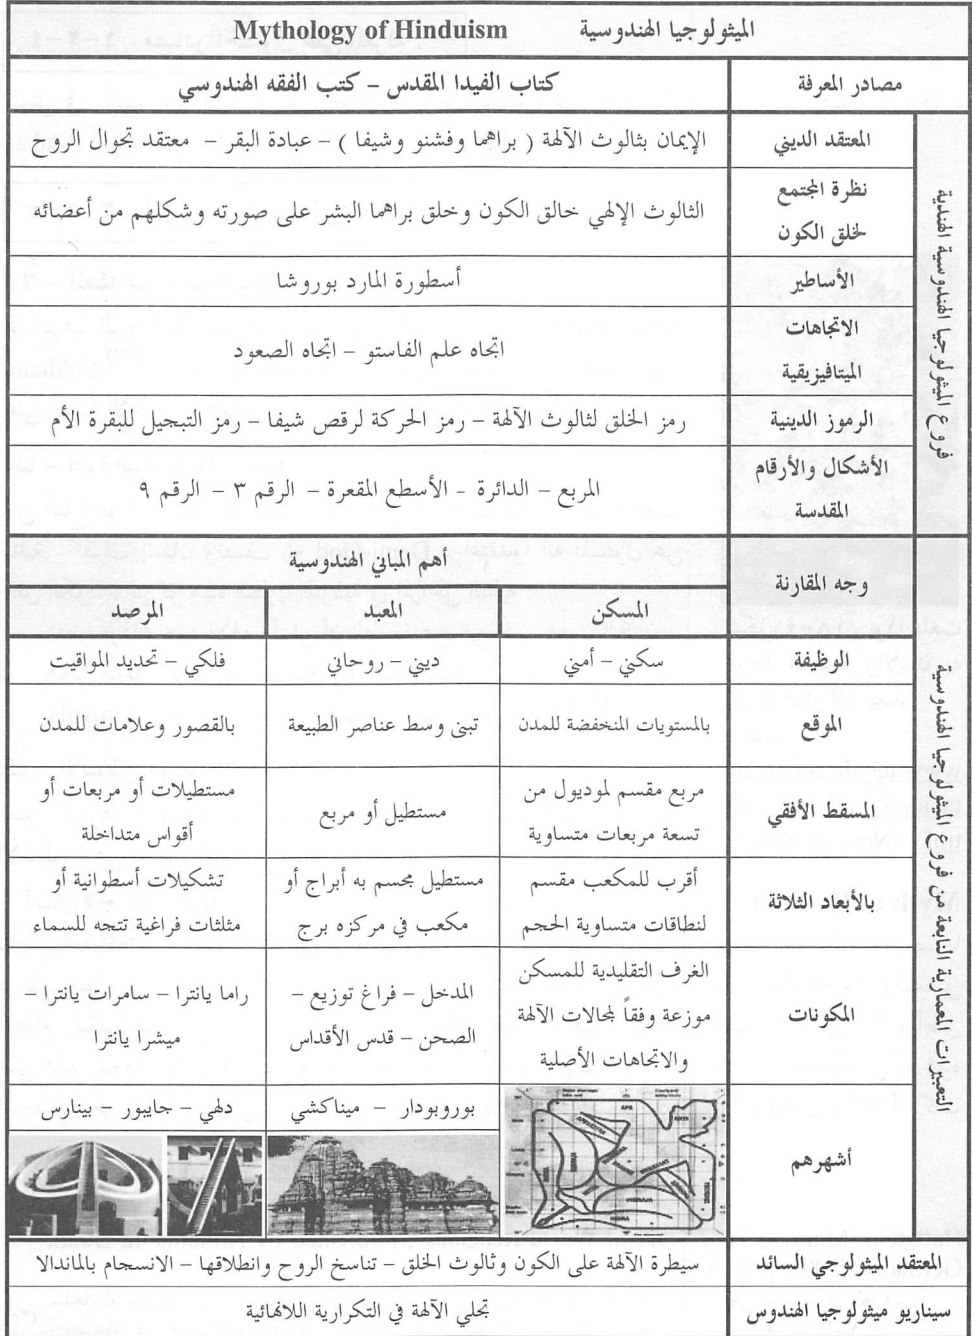 الميثولوجيا الهندوسية Mythology of Hinduism
مصادر المعرفة
كتاب الفيدا المقدس – كتب الفقه الهندوسي
فروع الميثولوجيا الهندوسية الهندية
المعتقد الديني
الإيمان بثالوث الآلهة ( براهما وفشنو وشيفا ) – عبادة البقر – معتقد تجوال الروح
نظرة المجتمع
لخلق الكون
الثالوث الإلهي خالق الكون وخلق براهما البشر على صورته وشكلهم من أعضائه
الأساطير
أسطورة المارد بوروشا
الاتجاهات
الميتافيزيقية
اتجاه علم الفاستو – اتجاه الصعود
الرموز الدينية
رمز الخلق لثالوث الآلهة – رمز الحركة لرقص شيفا – رمز التبجيل للبقرة الأم
الأشكال والأرقام
المقدسة
المربع – الدائرة - الأسطع المقعرة – الرقم ٣ – الرقم ٩
وجه المقارنة
أهم المباني الهندوسية
المسكن
المعبد
المرصد
التعبيرات المعمارية النابعة من فروع الميثولوجيا الهندوسية
الوظيفة
سكني – أمني
ديني – روحاني
فلكي – تحديد المواقيت
الموقع
بالمستويات المنخفضة للمدن
تبنى وسط عناصر الطبيعة
بالقصور وعلامات للمدن
المسقط الأفقي
مربع مقسم لموديول من
تسعة مربعات متساوية
مستطيل أو مربع
مستطيلات أو مربعات أو
أقواس متداخلة
بالأبعاد الثلاثة
أقرب للمكعب مقسم
لنطاقات متساوية الحجم
مستطيل مجسم به أبراج أو
مكعب في مركزه برج
تشكيلات أسطوانية أو
مثلثات فراغية تتجه للسماء
المكونات
الغرف التقليدية للمسكن
موزعة وفقاً لمجالات الآلهة
والاتجاهات الأصلية
المدخل – فراغ توزيع –
الصحن – قدس الأقداس
راما يانترا – سامرات يانترا –
ميشرا يانترا
أشهرهم
بوروبودار – ميناكشي
دلهي – جايبور – بينارس
المعتقد الميثولوجي السائد
سيطرة الآلهة على الكون وثالوث الخلق – تناسخ الروح وانطلاقها – الانسجام بالماندالا
سيناريو ميثولوجيا الهندوس
تجلي الآلهة في التكرارية اللانهائية